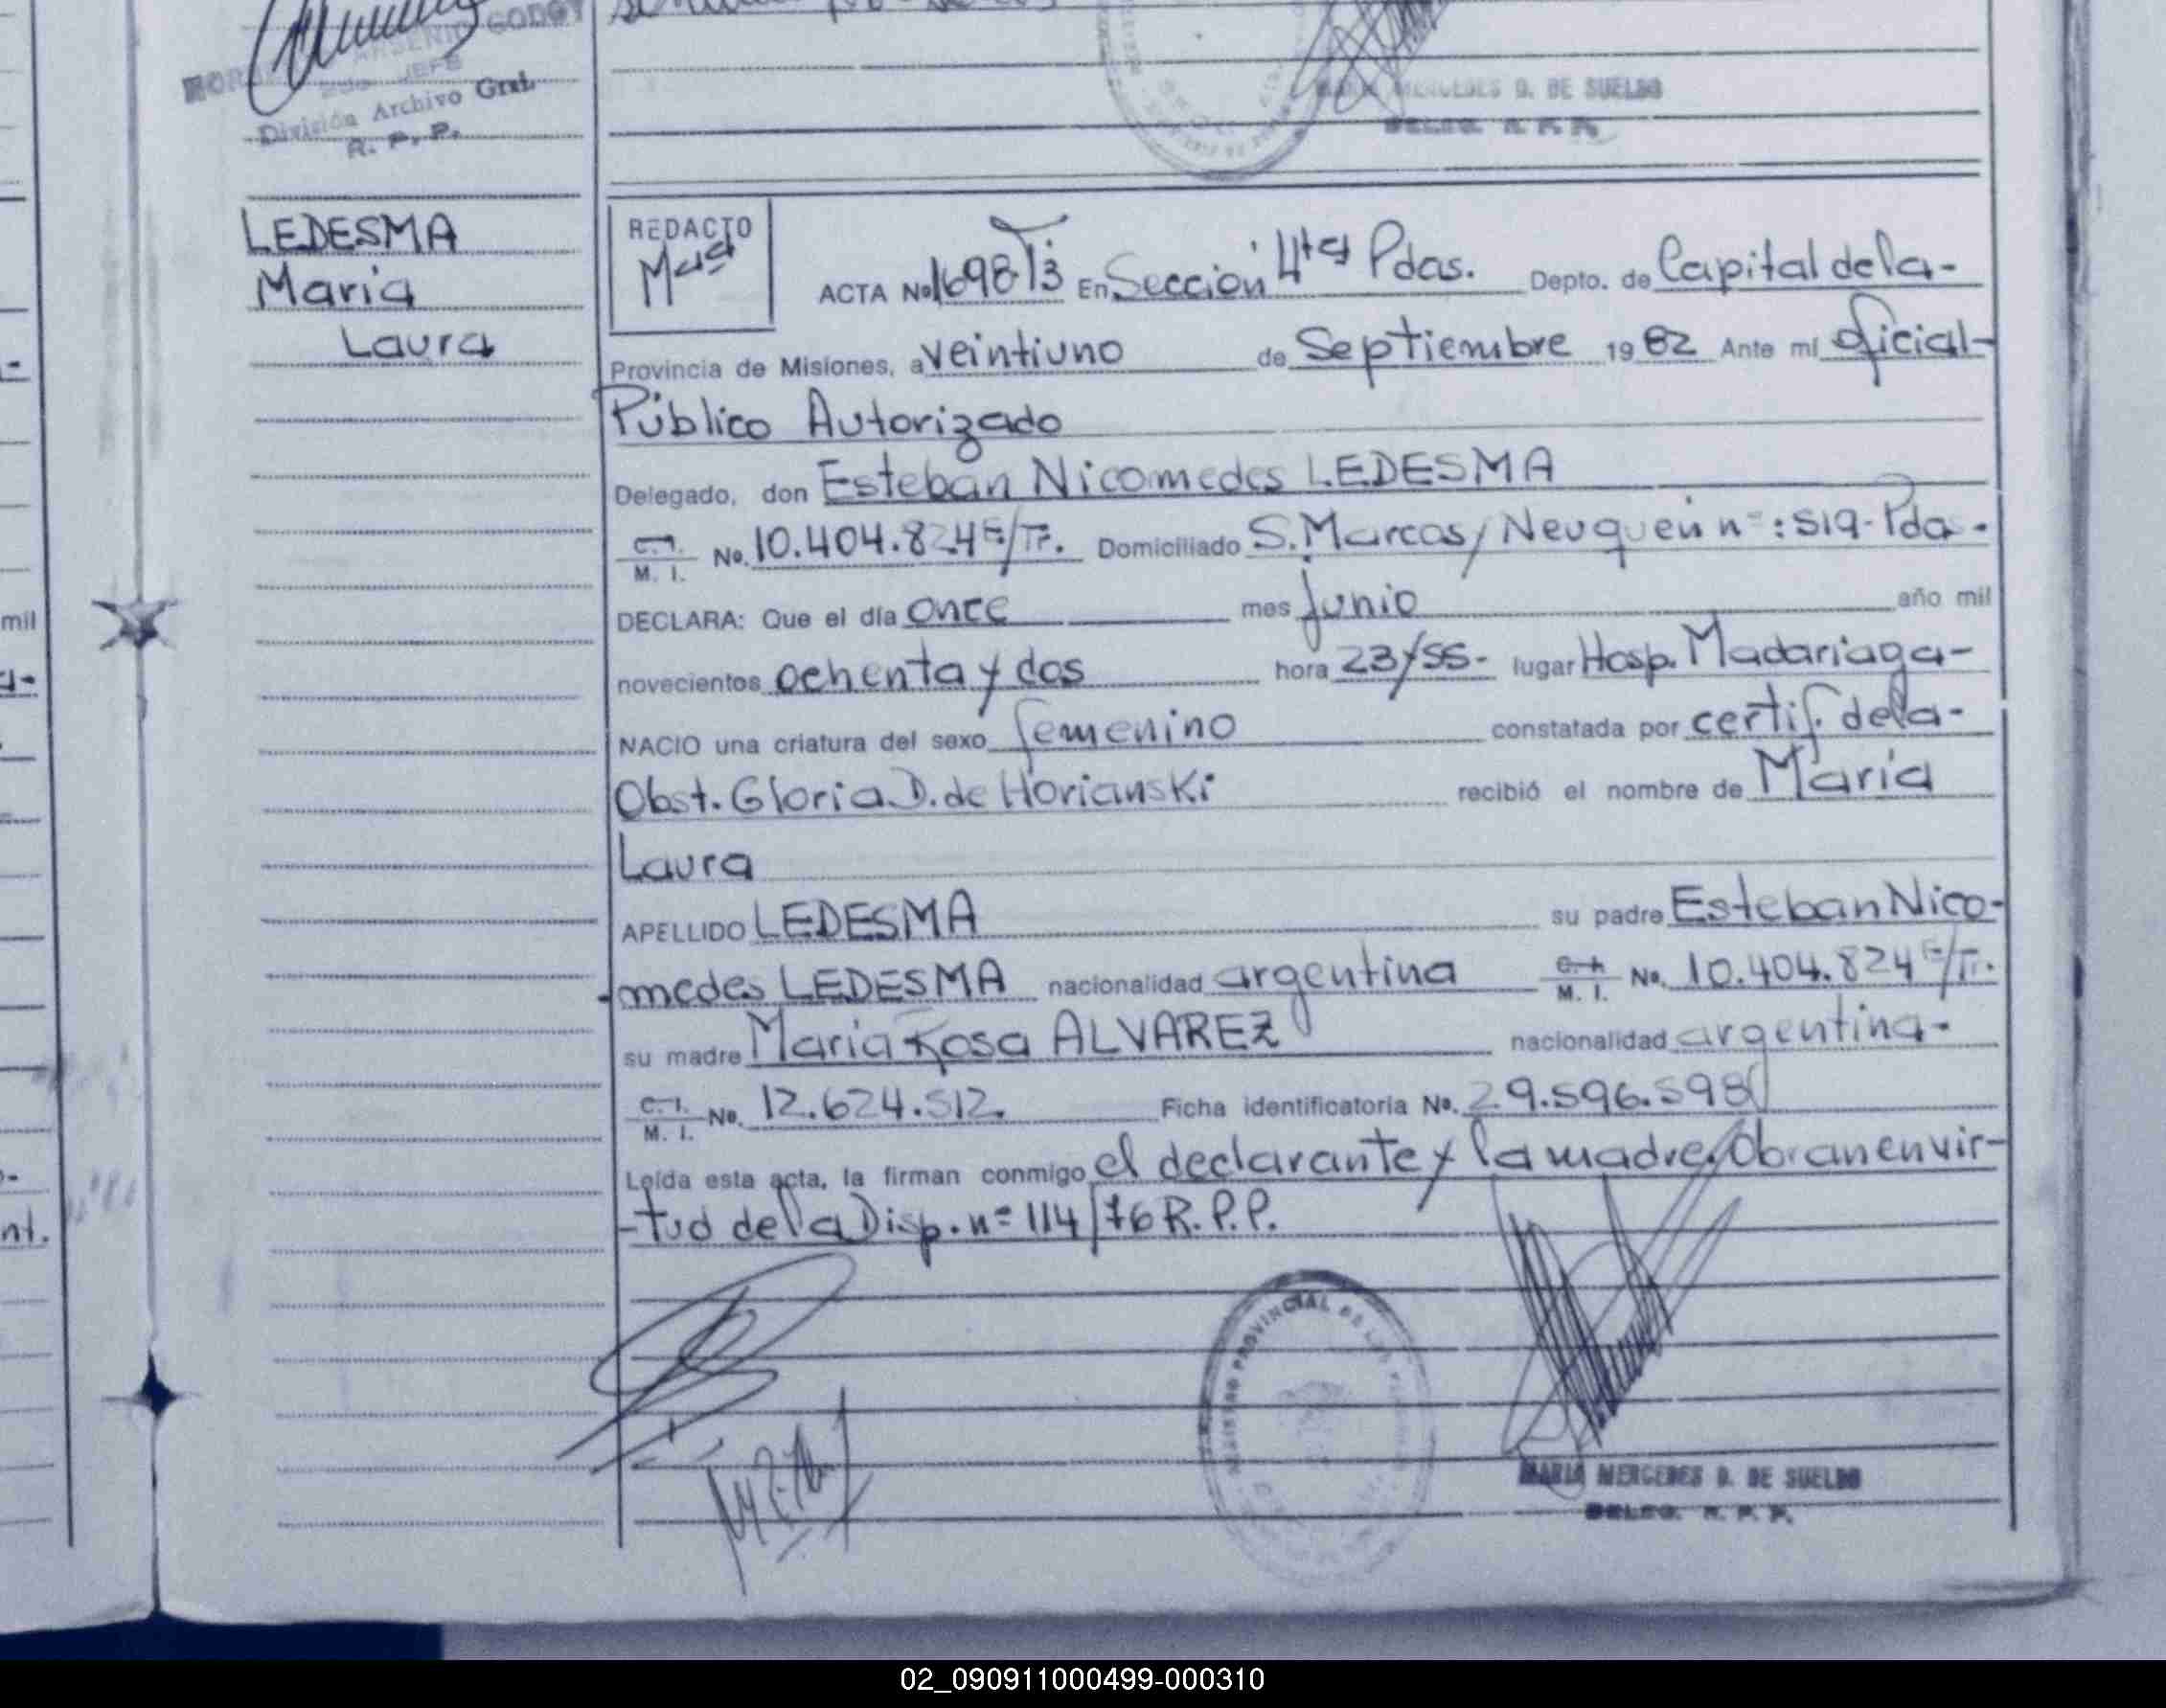 ARSENIO GODOY
2do. JEFE
División Archivo Gral.
R. P. P.
MARIA MERCEDES D. DE SUELDO
DELEG. R. P. P.
LEDESMA
Maria
Laura
REDACTO
ACTA No 1698 T3 En Sección 4ta Pdas. Depto. de Capital de la-
Provincia de Misiones, a veintiuno de Septiembre 1982 Ante mí Oficial-
Público Autorizado
Delegado, don Esteban Nicomedes LEDESMA
C. I. M. I. No. 10.404.824 E/Tr. Domiciliado S. Marcos/Neuquén nº: 519-Pda-
DECLARA: Que el día once mes junio año mil
novecientos ochenta y dos hora 23/55- lugar Hosp. Madariaga-
NACIO una criatura del sexo femenino constatada por certif. de la-
Obst. Gloria D. de Horianski recibió el nombre de María
Laura
APELLIDO LEDESMA su padre Esteban Nico-
-medes LEDESMA nacionalidad argentina C. I. M. I. No. 10.404.824 E/Tr.
su madre Maria Rosa ALVAREZ nacionalidad argentina-
C. I. M. I. No. 12.624.512. Ficha identificatoria No. 29.596.598
Leída esta acta, la firman conmigo el declarante y la madre. Obran en vir-
-tud de la Disp. nº 114/76 R.P.P.
REGISTRO PROVINCIAL DE LAS PERSONAS
MARIA MERCEDES D. DE SUELDO
DELEG. R. P. P.
mil
nt.
02_090911000499-000310